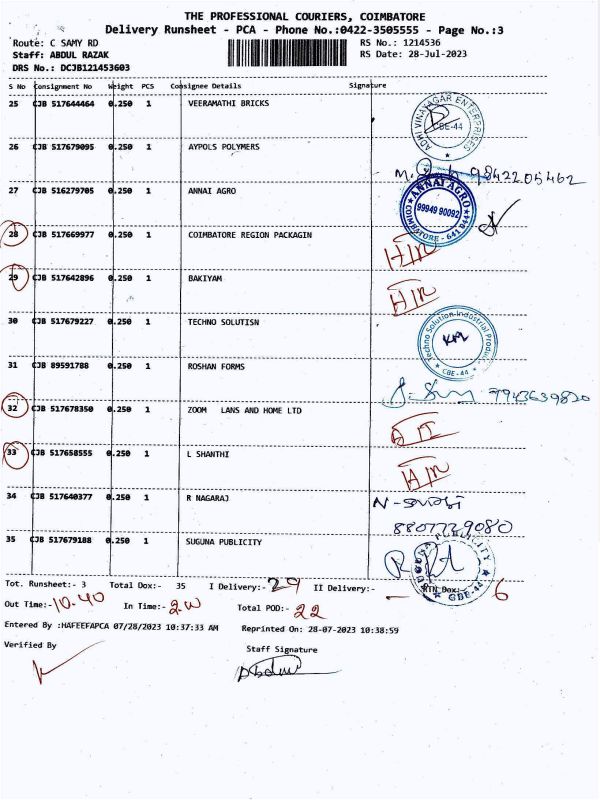 THE PROFESSIONAL COURIERS, COIMBATORE
Delivery Runsheet - PCA - Phone No.:0422-3505555 - Page No.:3
Route: C SAMY RD RS No.: 1214536
Staff: ABDUL RAZAK RS Date: 28-Jul-2023
DRS No.: DCJB121453603
S No Consignment No Weight PCS Consignee Details Signature
25 CJB 517644464 0.250 1 VEERAMATHI BRICKS
ADHI VINAYAGAR ENTERPRISES CBE-44
26 CJB 517679095 0.250 1 AYPOLS POLYMERS
9842205462
27 CJB 516279705 0.250 1 ANNAI AGRO
ANNAI AGRO 99949 90092 COIMBATORE - 641 044
28 CJB 517669977 0.250 1 COIMBATORE REGION PACKAGIN
29 CJB 517642896 0.250 1 BAKIYAM
30 CJB 517679227 0.250 1 TECHNO SOLUTISN
Techno Solution-Industrial Produ.. CBE-44
31 CJB 89591788 0.250 1 ROSHAN FORMS
7943639820
32 CJB 517678350 0.250 1 ZOOM LANS AND HOME LTD
33 CJB 517658555 0.250 1 L SHANTHI
34 CJB 517640377 0.250 1 R NAGARAJ
8807729080
35 CJB 517679188 0.250 1 SUGUNA PUBLICITY
SUGUNA PUBLICITY CBE-44
Tot. Runsheet:- 3 Total Dox:- 35 I Delivery:- 29 II Delivery:- - RTN Dox:- 6
Out Time:- 10.40 In Time:- Total POD:- 22
Entered By :HAFEEFAPCA 07/28/2023 10:37:33 AM Reprinted On: 28-07-2023 10:38:59
Verified By Staff Signature